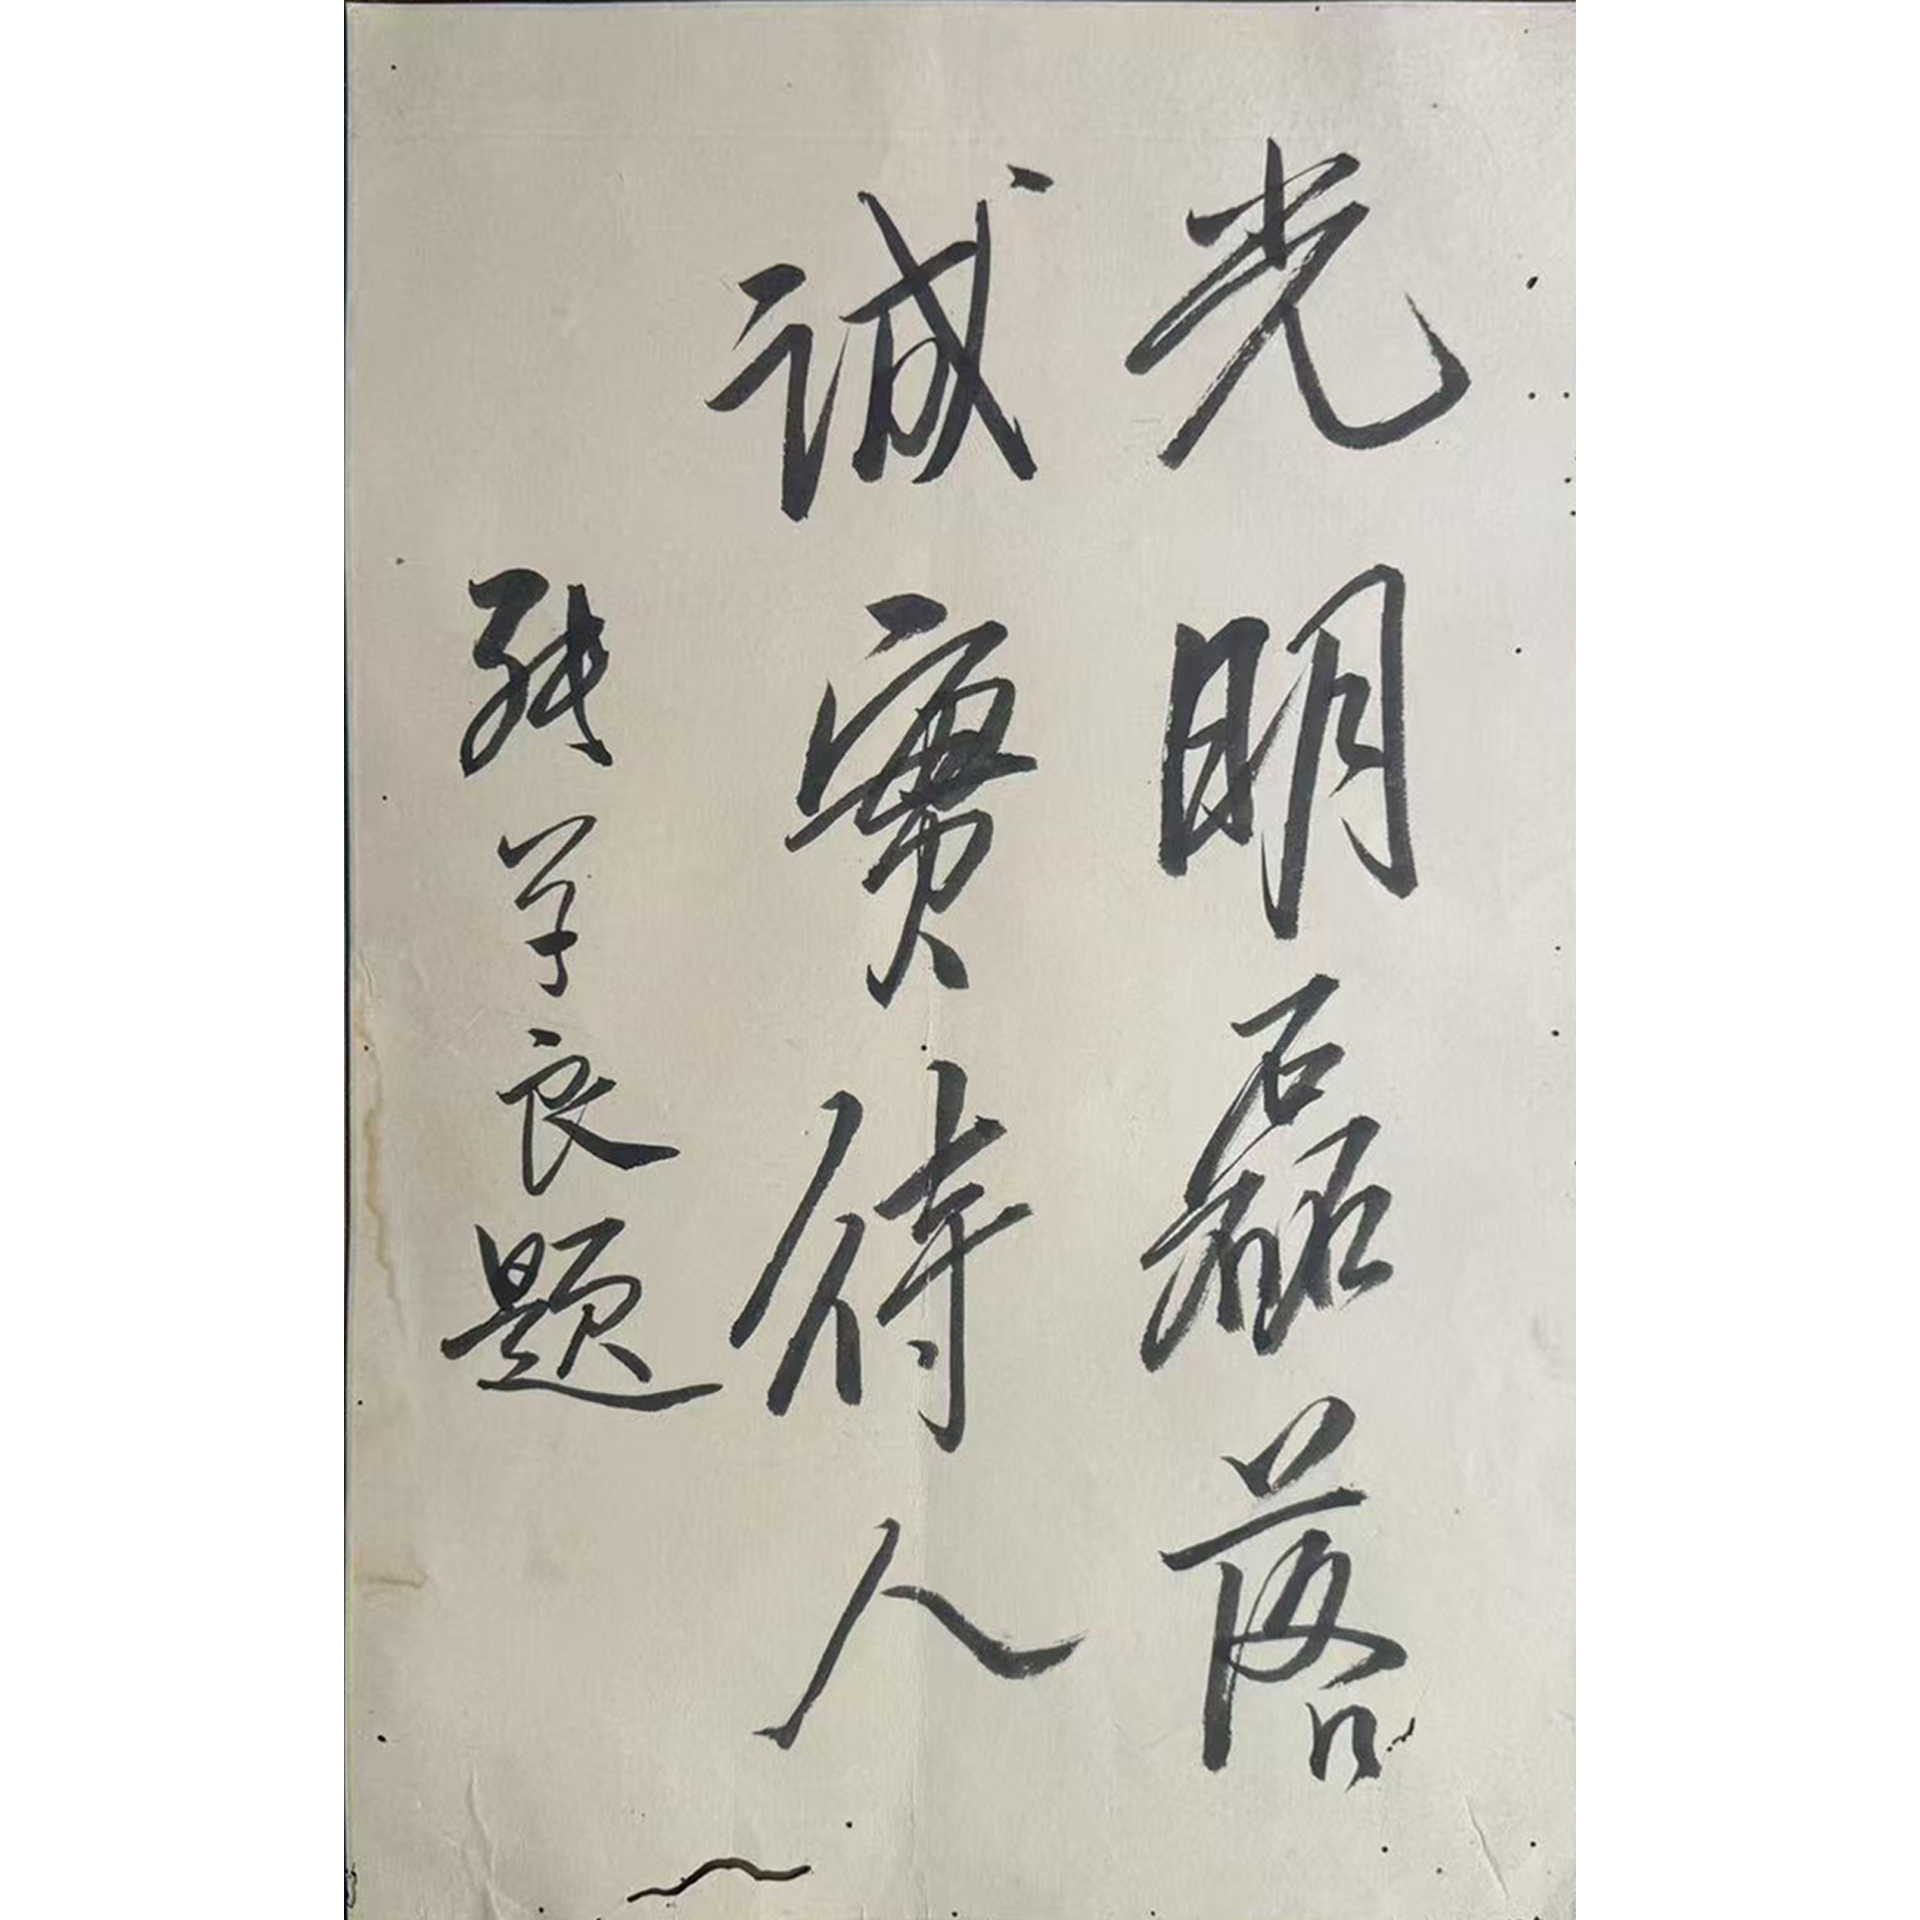 光明磊落
誠實待人
张学良题